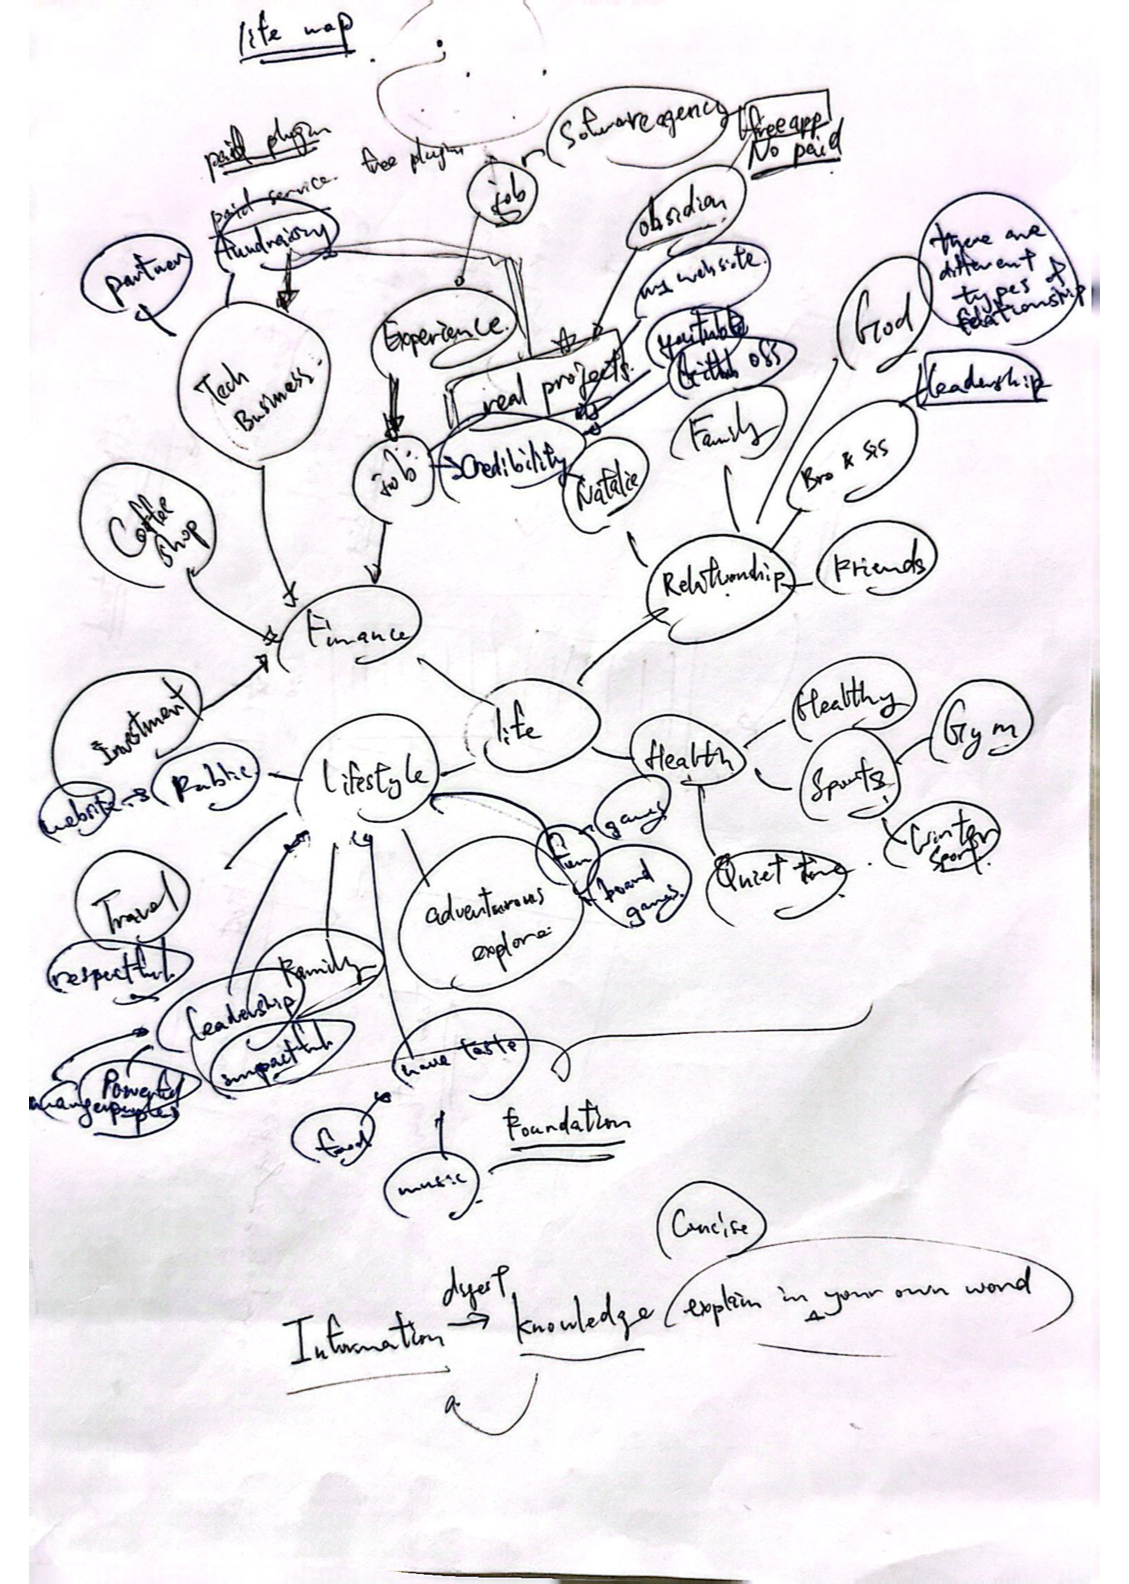 life map
paid plugin
free plugin
paid service
Software agency
free app
No paid
job
obsidian
my website
youtube
Github OSS
partner
Tech
Business
Experience
real projects
job
Credibility
Natalie
Family
God
there are
different
types of
relationship
leadership
Bro & sis
Friends
Relationship
Coffee
shop
Finance
Investment
life
Lifestyle
Public
website
Health
Healthy
Sports
Gym
Winter
sports
Quiet time
fun
games
board
games
adventurous
explore
Travel
respectful
Leadership
Family
impactful
Powerful
have taste
food
music
Foundation
Concise
digest
Information → knowledge
explain in your own word